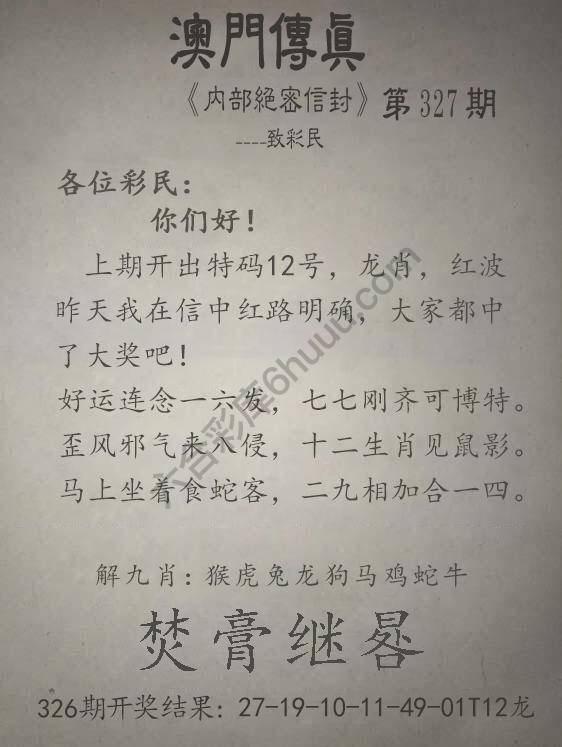 澳門傳真
《内部絕密信封》第327期
----致彩民
各位彩民：
你们好！
上期开出特码12号，龙肖，红波
昨天我在信中红路明确，大家都中
了大奖吧！
好运连念一六发，七七刚齐可博特。
歪风邪气来八侵，十二生肖见鼠影。
马上坐着食蛇客，二九相加合一四。
六合彩库6huuu.com
解九肖：猴虎兔龙狗马鸡蛇牛
焚膏继晷
326期开奖结果：27-19-10-11-49-01T12龙